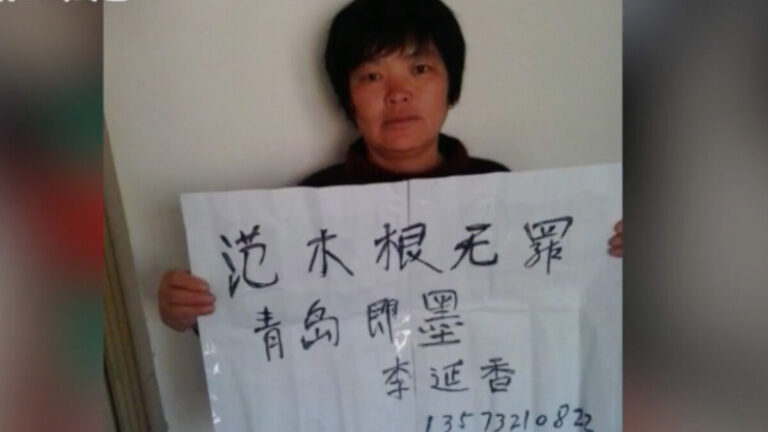 范木根无罪
青岛即墨
李延香
13573210822